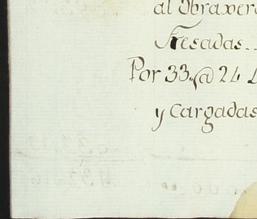 al Obrawer
Fresadas.
Por 33 @ 24 L
y Cargadas